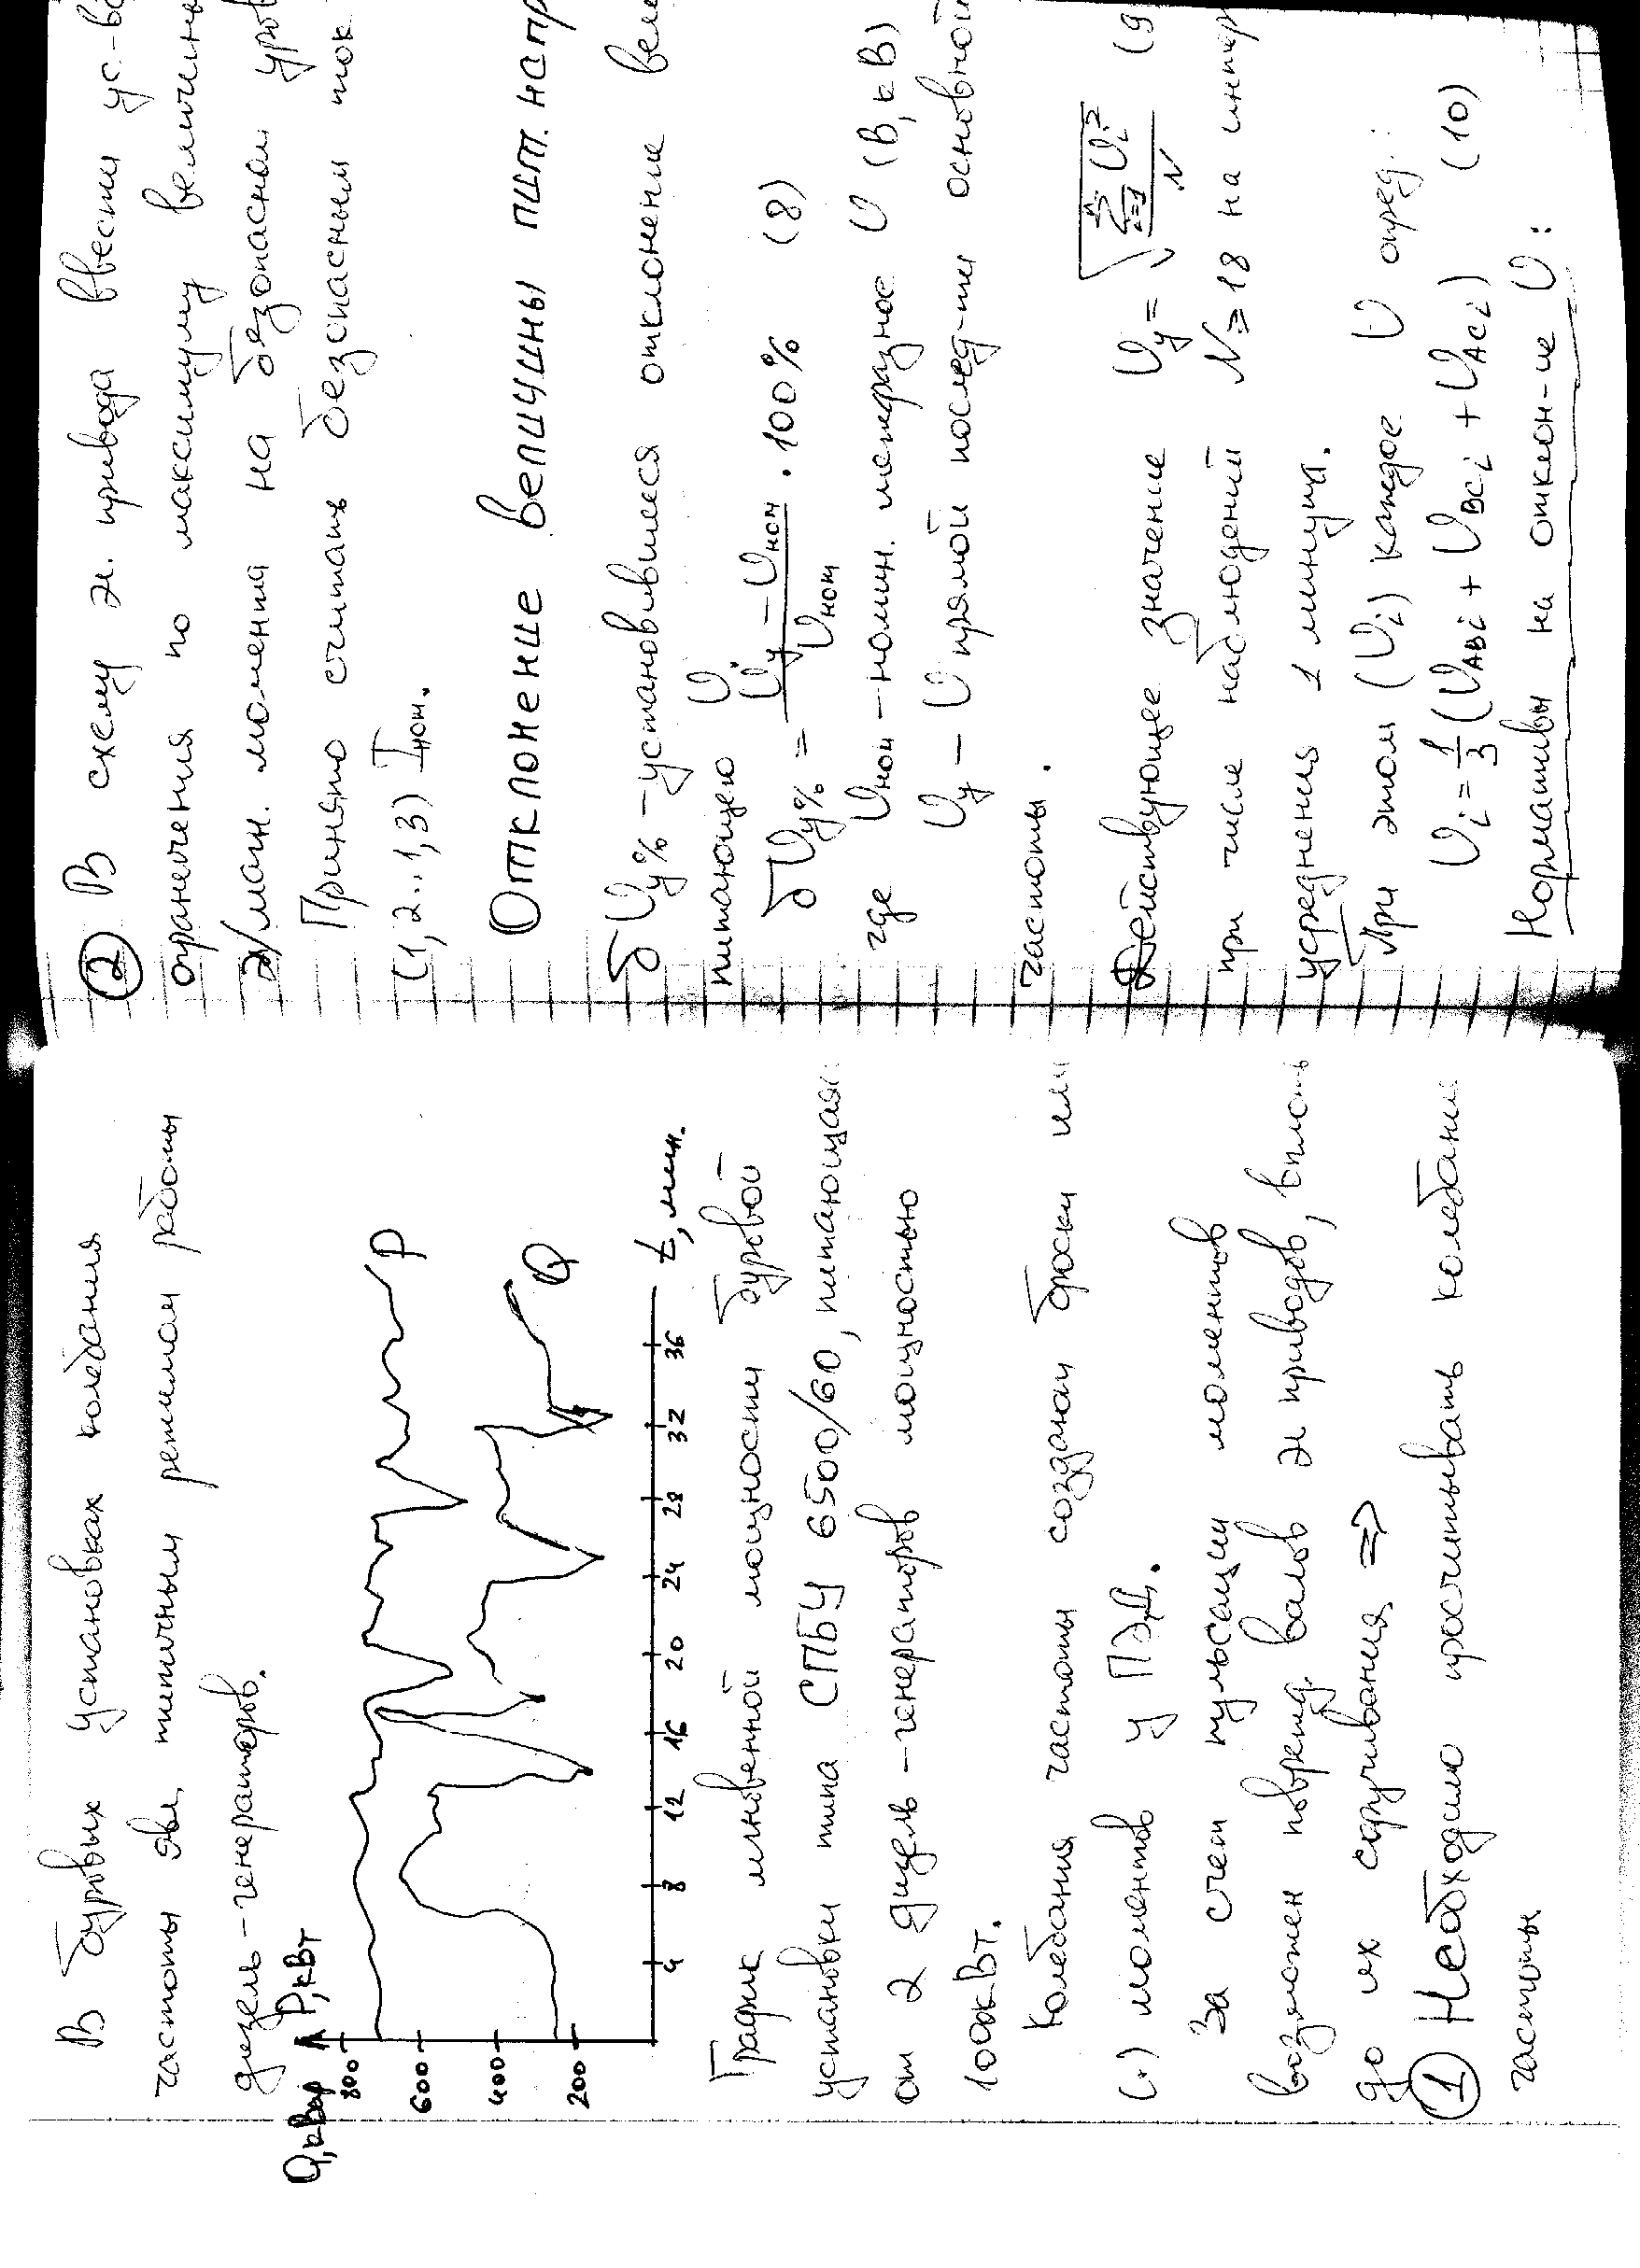 В буровых установках колебания
частоты явл. типичным режимом работы
дизель-генераторов.
Q,кВар P,кВт
800
600
400
200
4 8 12 16 20 24 28 32 36 t, мин.
P
Q
График мгновенной мощности буровой
установки типа СПБУ 6500/60, питающаяс
от 2 дизель-генераторов мощностью
1000кВт.
Колебания частоты создают броски или
(·) моментов у ПЭД.
За счет пульсации моментов
возможен поврежд. валов эл приводов, вплоть
до их скручивания, =>
① Необходимо просчитывать колебани
частоты
② В схему эл. привода ввести ус-во
ограничения по максимуму величины
эл/маг. момента на безопасном уров
Принято считать безопасным ток
(1,2..1,3) Iном.
Отклонение величины пит. напр
δUу% - установившееся отклонение вели
питающего U
δUу% = (Uу - Uном)/Uном · 100% (8)
где Uном - номин. междуфазное U (В, кВ)
Uу - U прямой послед-ти основной
частоты.
Действующее значение Uу = √(∑ᵢ₌₁ᴺ Uᵢ²/N) (9
при числе наблюдений N ≥ 18 на интер
усреднения 1 минута.
При этом (Uᵢ) каждое U опред.:
Uᵢ = 1/3 (UABᵢ + UBCᵢ + UACᵢ) (10)
Нормативы на отклон-ие U: